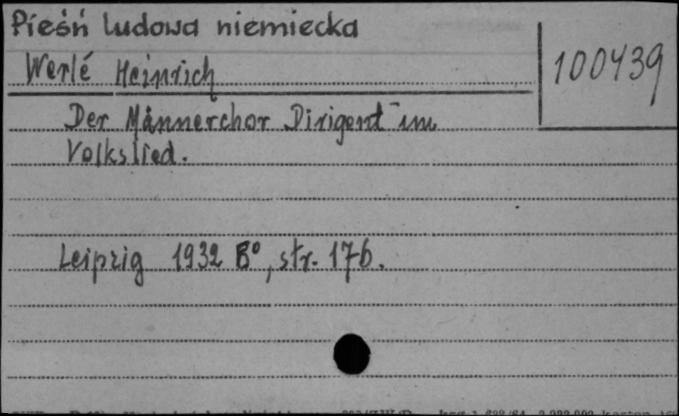 Pieśń ludowa niemiecka
Werlé Heinrich
100439
Der Männerchor Dirigent im
Volkslied.
Leipzig 1932 8°, str. 176.